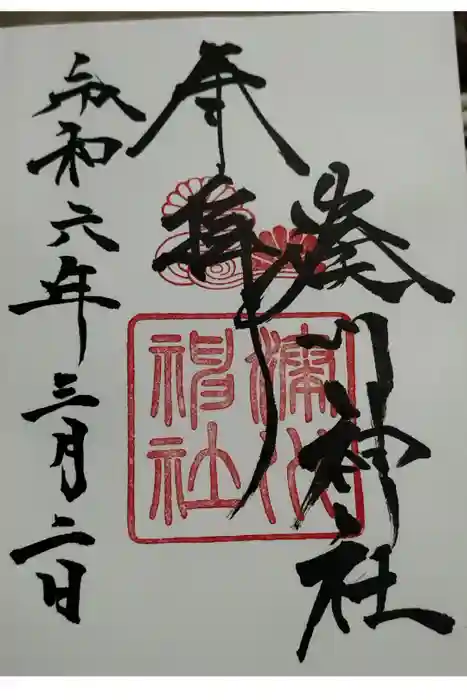 奉拝
湊川神社
湊川
神社
令和六年三月二日